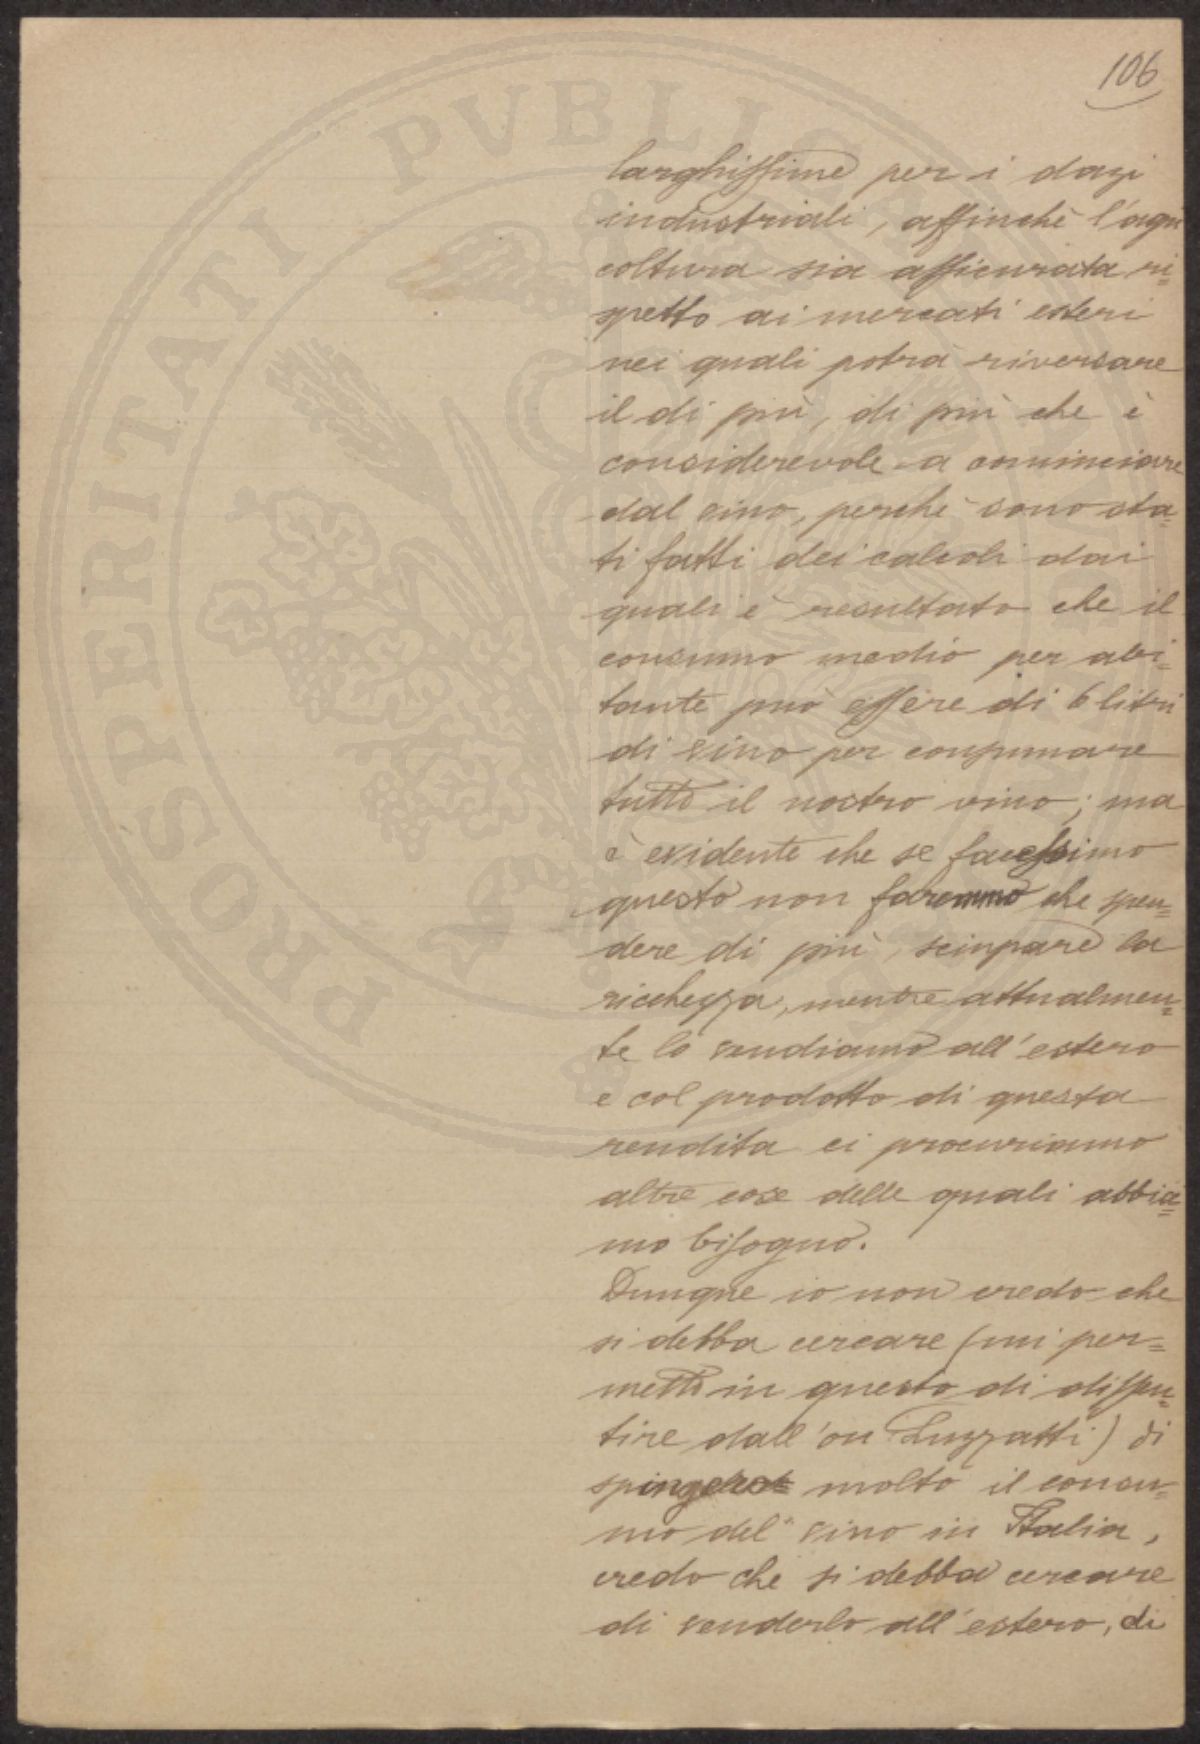 106
larghissime per i dazi
industriali, affinchè l'agri
coltura sia assicurata ri=
spetto ai mercati esteri
nei quali potrà riversare
il di più, di più che è
considerevole a cominciare
dal vino, perchè sono sta=
ti fatti dei calcoli dai
quali è resultato che il
consumo medio per abi=
tante può essere di 6 litri
di vino per consumare
tutto il nostro vino; ma
è evidente che se facessimo
questo non faremmo che spen=
dere di più, sciupare la
ricchezza, mentre attualmen=
te lo vendiamo all'estero
e col prodotto di questa
rendita ci procuriamo
altre cose delle quali abbia=
mo bisogno.
Dunque io non credo che
si debba cercare (mi per=
metto in questo di dissen=
tire dall'on Luzzatti) di
molto il consu=
mo del vino in Italia,
credo che si debba cercare
di venderlo all'estero, di
PROSPERITATI PVBLICAE